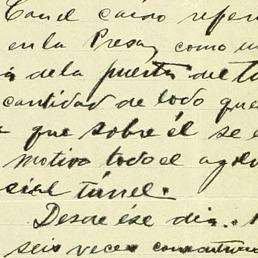 Con el caino refer
en la Presa, como un
de la puerta de tu
cantidad de lodo que
que sobre él se e
motivo todo el ag
sial túnel.
Desde ése dia.
seis veces consecutiva